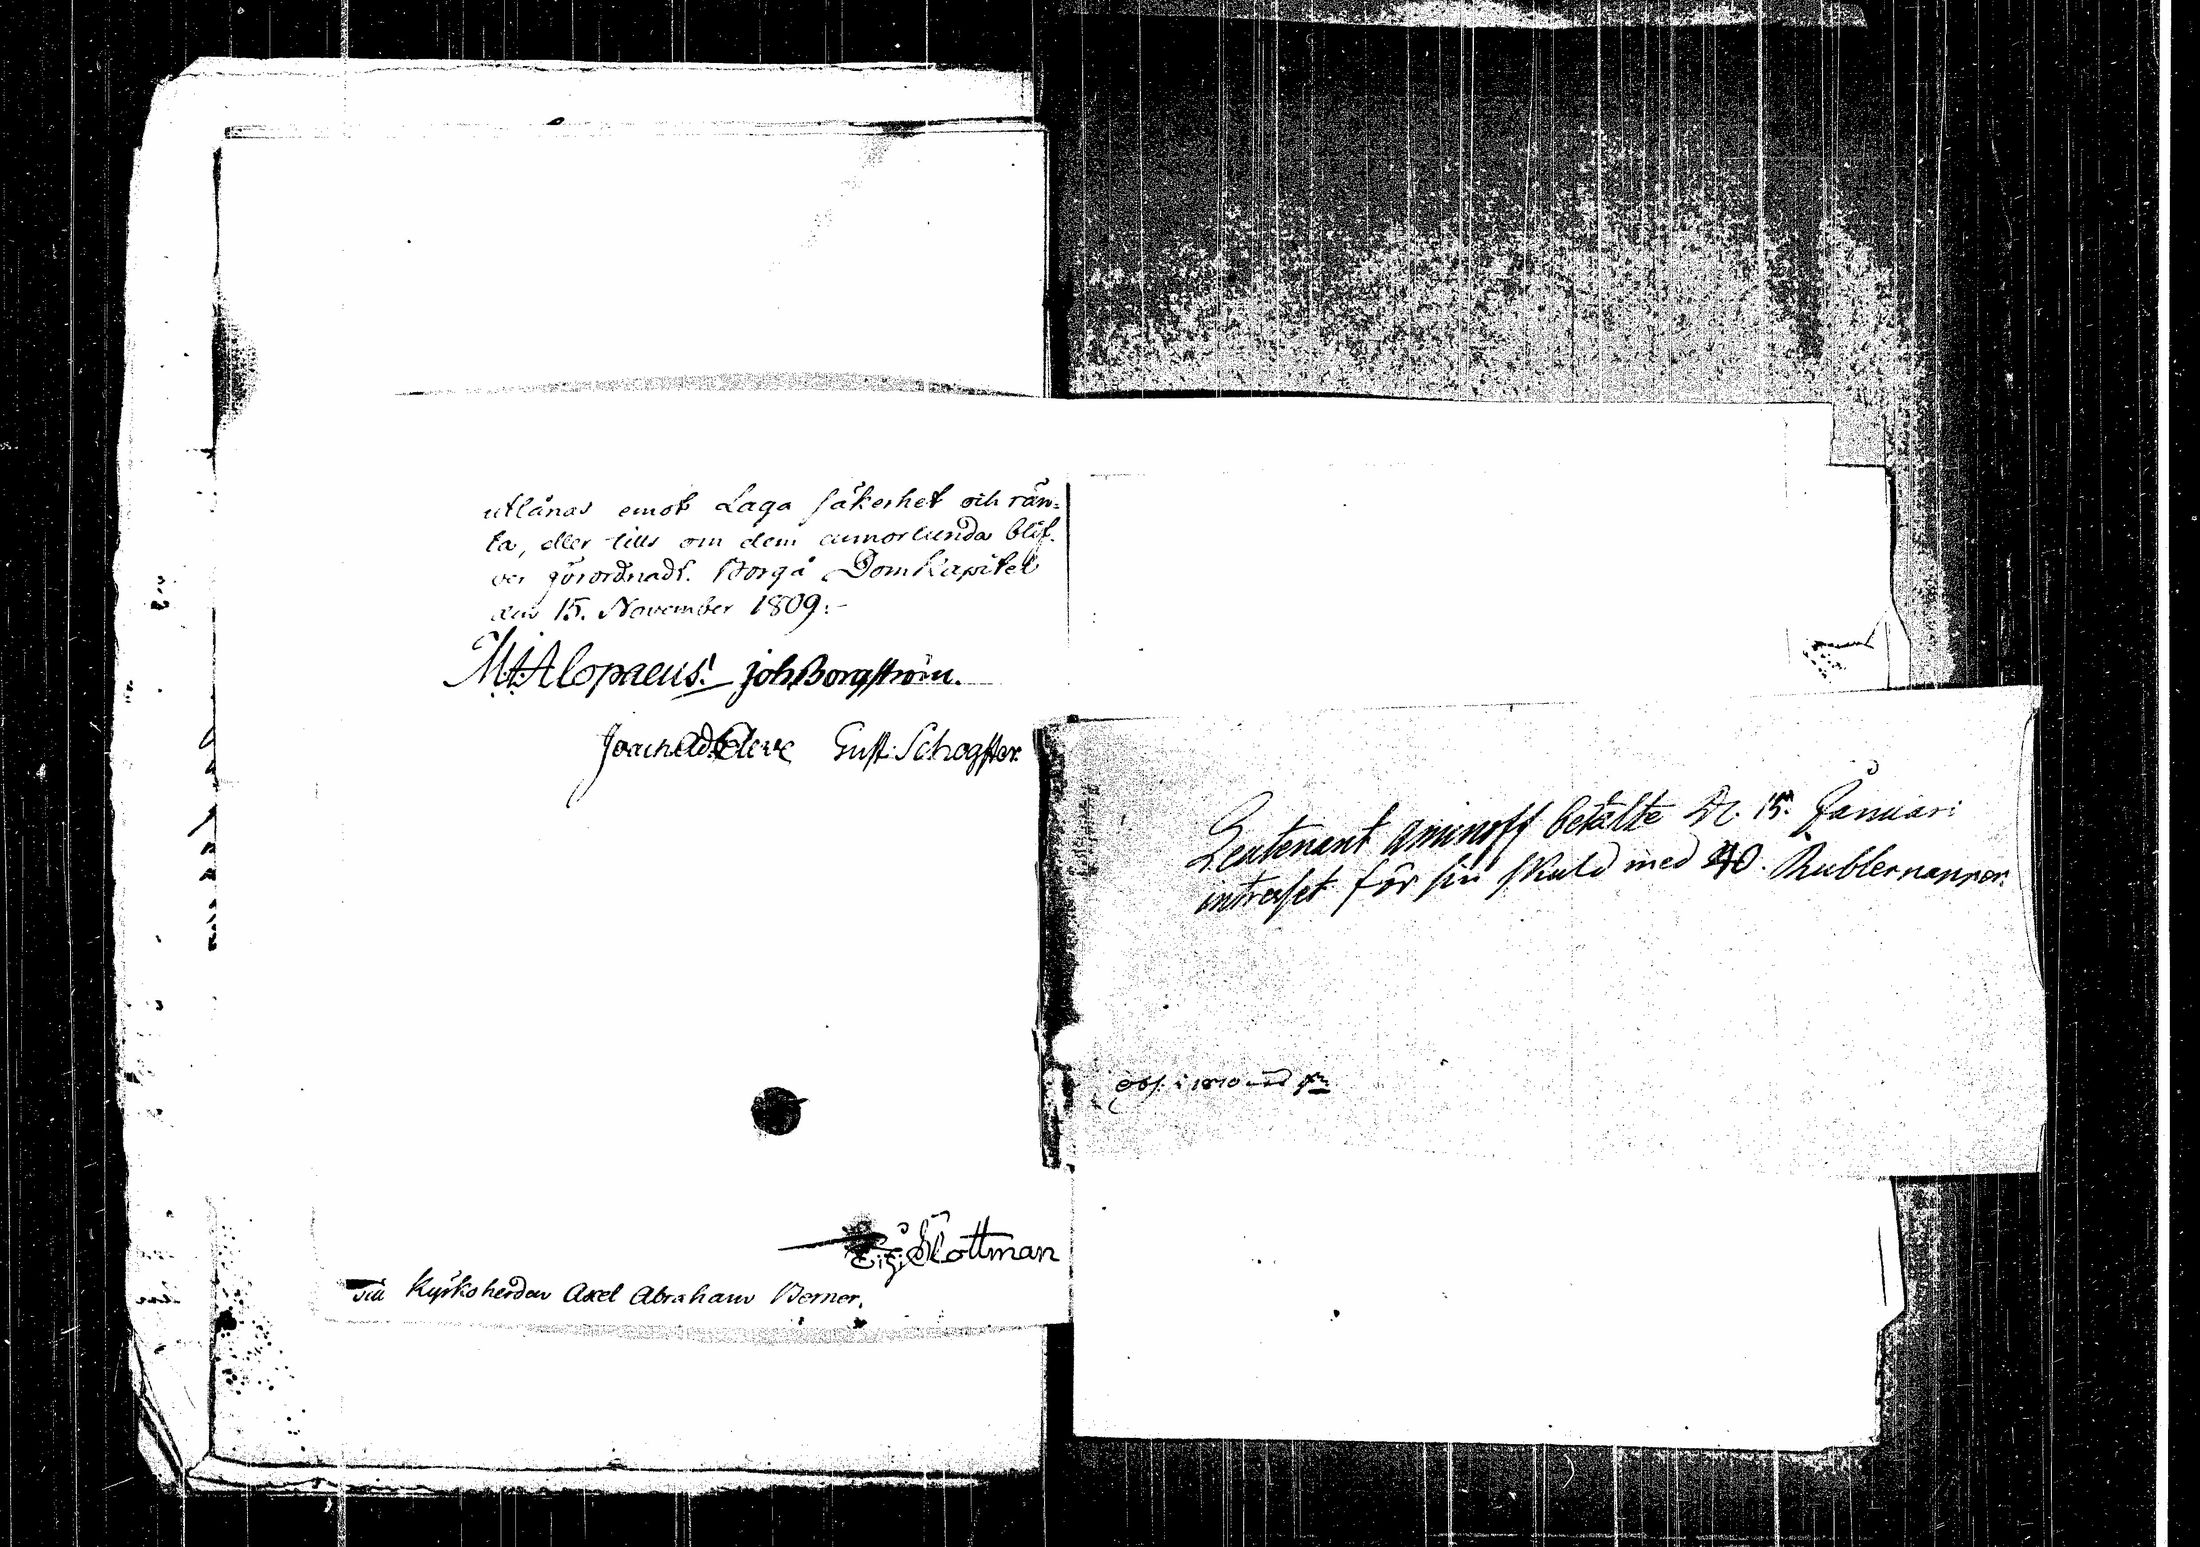 utlånas emot Laga säkerhet och rän-
ta, eller tills om dem annorlunda blif-
ver förordnadt. Borgå DomKapitel
den 15. November 1809:-
M:s: Alopaeus. joh. Borgström.
Joach: Ad: Cleve Gust: Schogster.
Slottman
Till Kyrkoherden Axel Abraham Berner.
Leutenant Aminoff betalte D. 15. Januari
intresset för sin skuld med 40. Rubler
i 1810